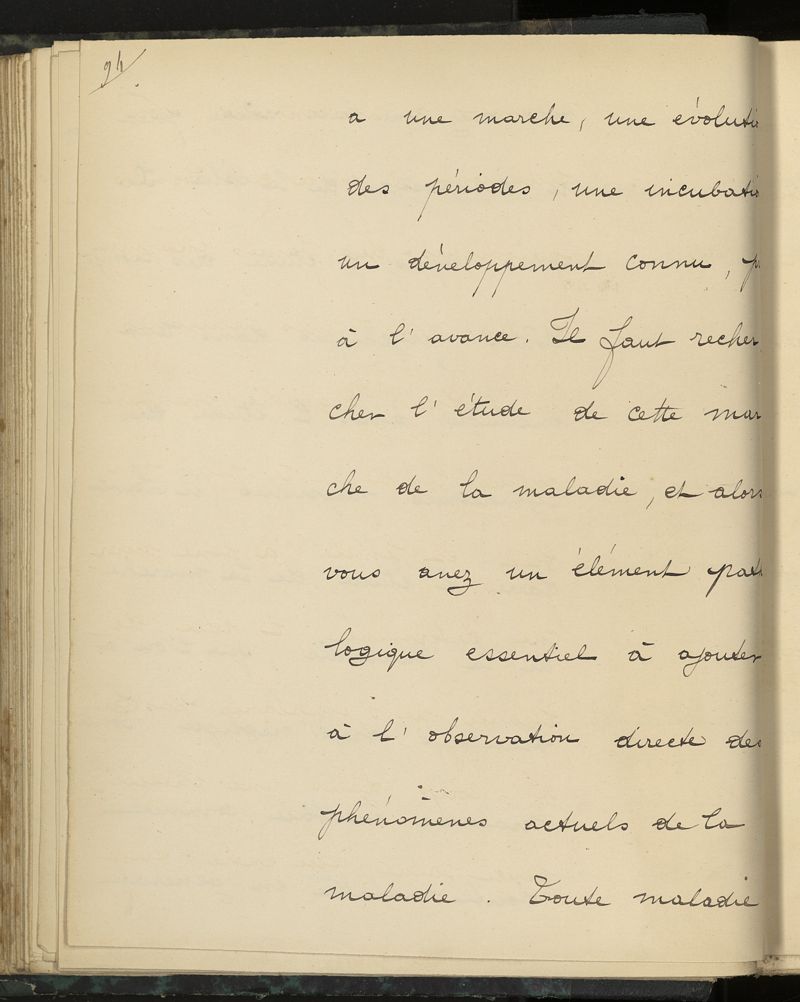 94
a une marche, une évoluti
des périodes, une incubati
un développement connu, p
à l'avance. Il faut recher
cher l'étude de cette mar
che de la maladie, et alors
vous avez un élément pat
logique essentiel à ajouter
à l'observation directe des
phénomènes actuels de la
maladie. Toute maladie